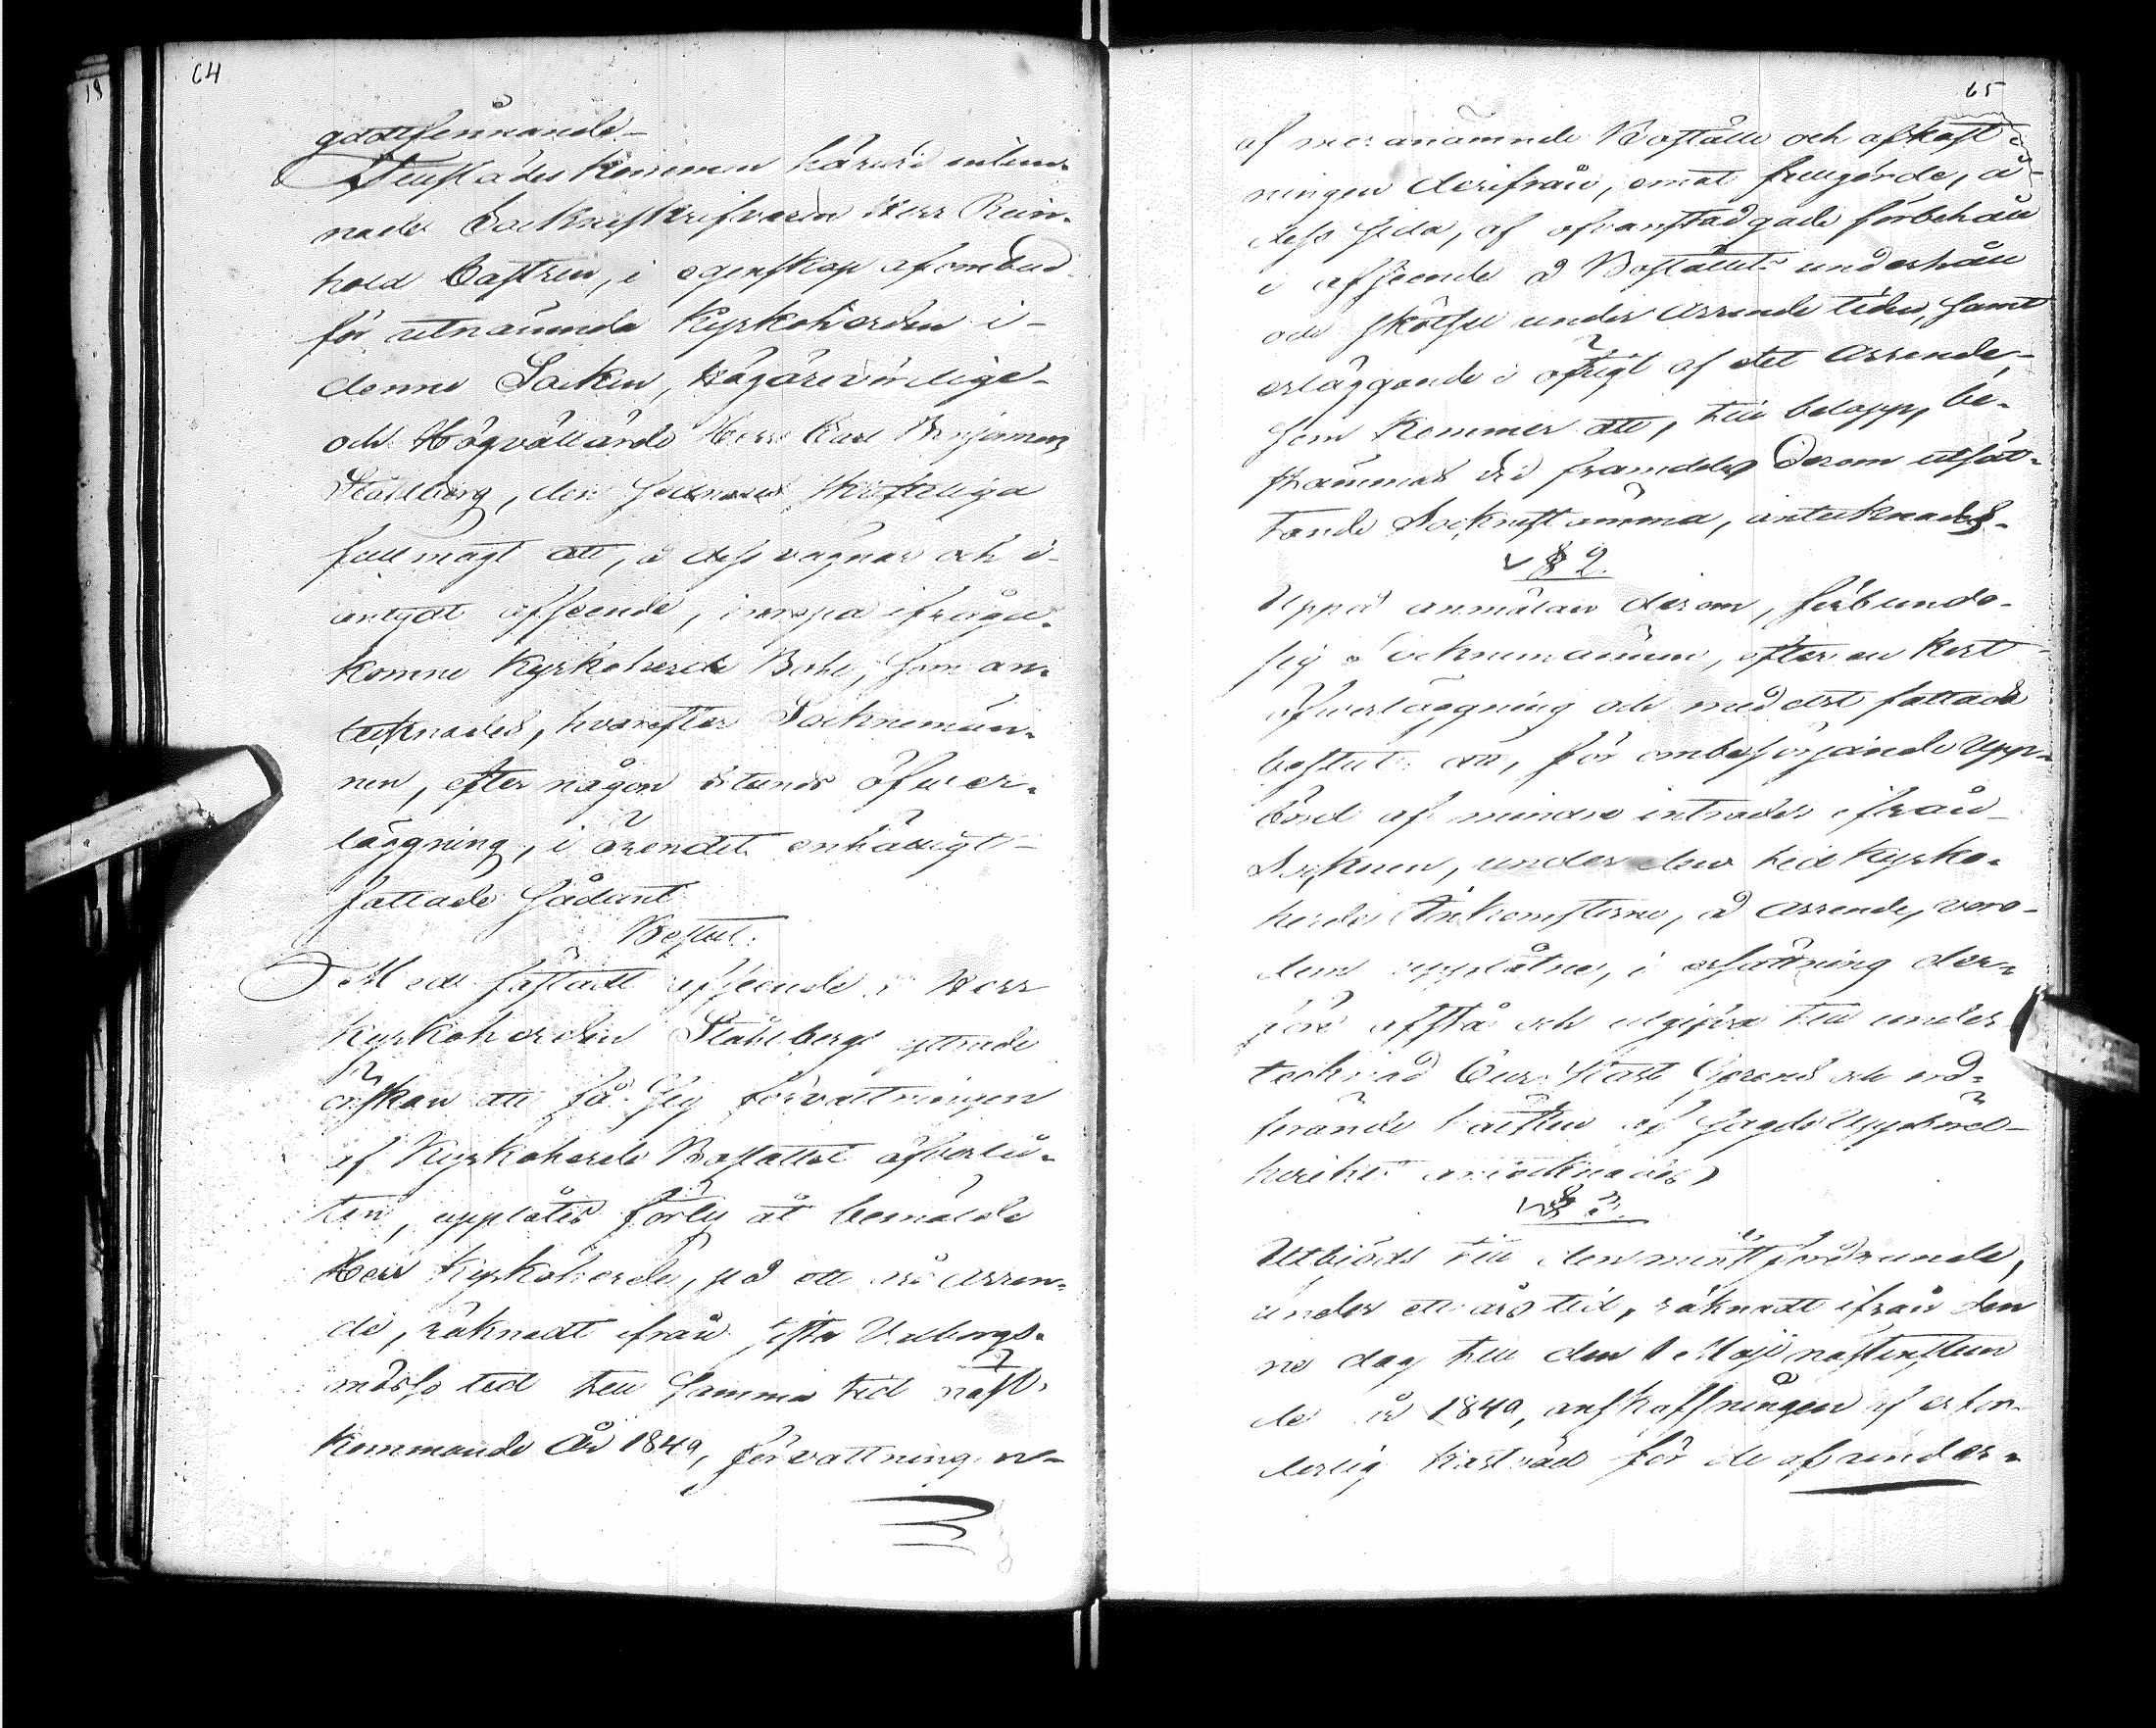 64
godtfinnande_
Tillstädes kommen härvid inläm¬
nade Sockneskrifvaren Herr Rein¬
hold Castren, i egenskap af ombud
för utnämnda Kyrkoherden i_
denna Socken, Högärevördige_
och Högvällärde Herr Carl Benjamin
Stålberg, den sednares skriftliga
fullmagt att, å dess vägnar och i_
antydt afseende, inropa ifråga¬
komne Kyrkoherde Bohl, som an¬
tecknades, hvarefter Socknemän¬
nen, efter någon stunds öfver¬
läggning, i ärendet enhälligt_
fattade sådant
Beslut:
Med fästadt afseende å Herr
Kyrkoherden Stålbergs yttrade
önskan att få sig förvaltningen
af Kyrkoherde Bostället öfverlå¬
ten, upplåtes förty åt bemälde
Herr Kyrkoherde, på ett års arren¬
de, räknadt ifrån sista Valborgs¬
mässo tid till samma tid näst¬
kommande År 1849, förvaltningen_
65
af mer anämnde Boställe och afkast¬
ningen derifrån, emot fullgörde, å_
dess sida, af ofvanstadgade förbehåll
i afseende å Boställets underhåll
och skötsel under arrende tiden, samt
erläggande i öfrigt af det arrende,
som kommer att, till belopp, be¬
stämmas vid framdeles derom utsät¬
tande Socknestämma, antecknades.
§ 2.
Uppå anmälan derom, förbundo_
sig Socknemännen, efter en kort_
öfverläggning och medelst fattade
beslut att, för ombesörjande upp¬
börd af mindre intrader ifrån_
Socknen, under den tid Kyrko¬
herde Inkomsterne, å arrende, voro_
dem upplåtne, i ersättning der¬
före afstå och utgifva till under
tecknad
af sagde Uppbörd_
antecknades)
§ 3.
Utbjöds till den minstfordrande,
under ett års tid, räknadt ifrån den
na dag till den 1 Maji nästinstun
de år 1849, anskaffningen af erfor¬
derlig kastved för de af under¬